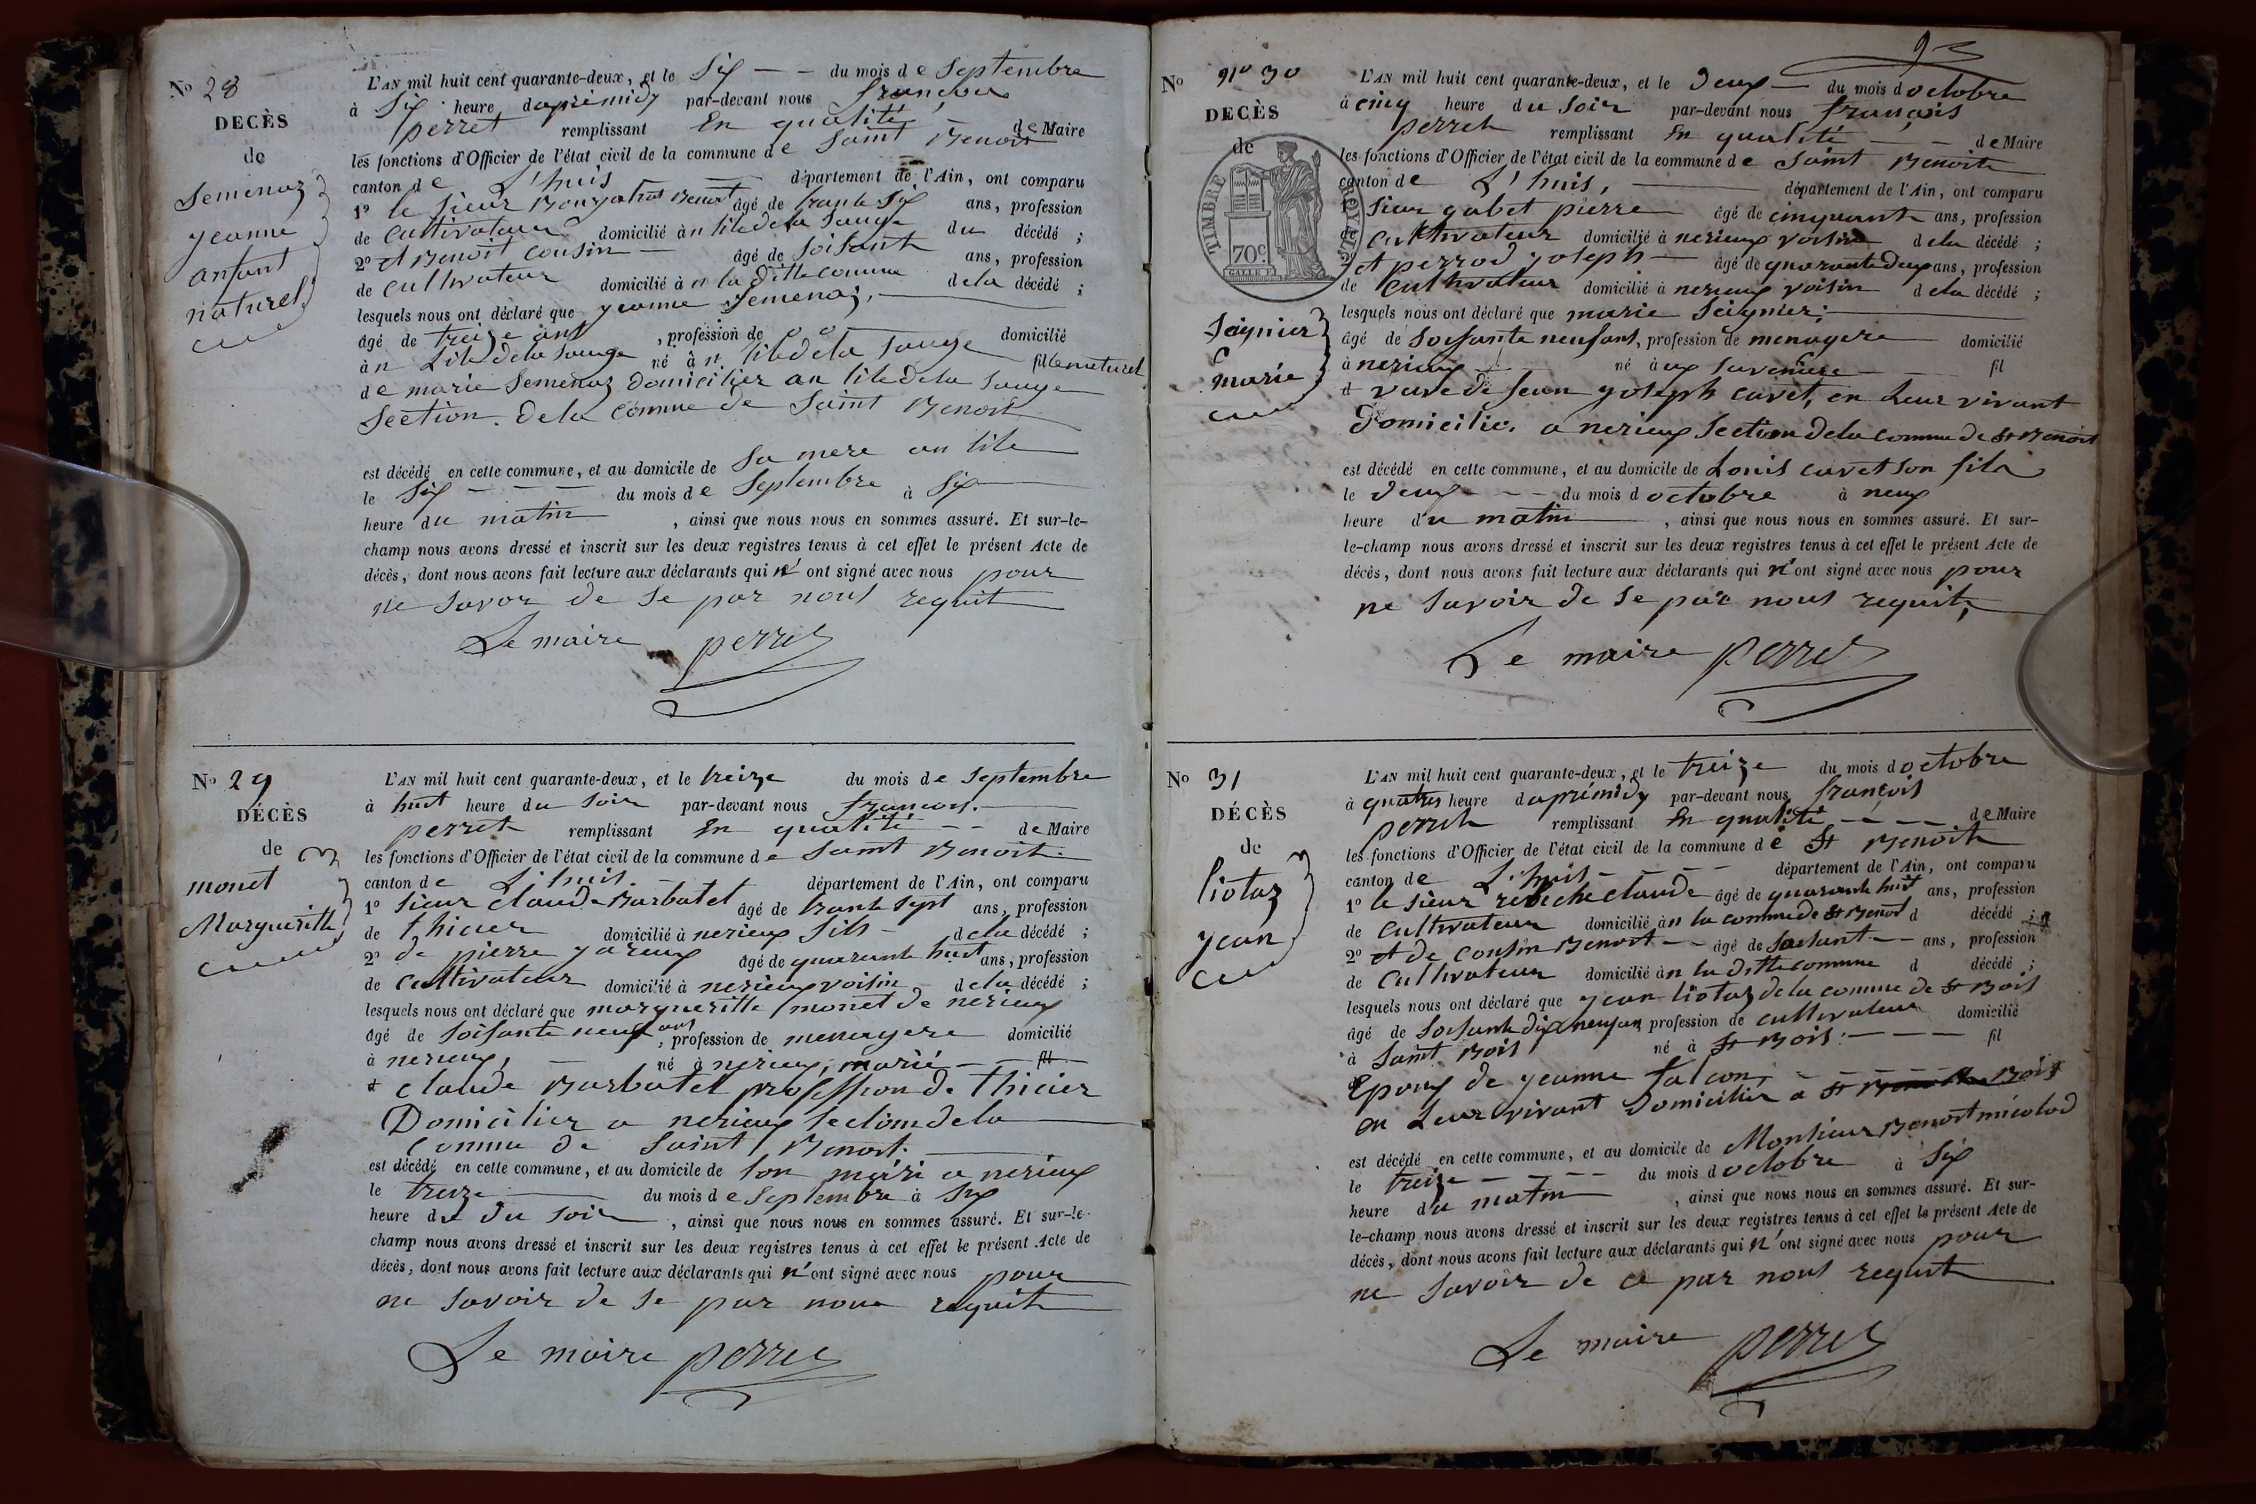 No 28
DECÈS
de
Semenaz
jeanne
anfant
naturel
L'AN mil huit cent quarante-deux, et le Six du mois de Septembre
à Six heure daprémidy par-devant nous françois
perret remplissant En qualité de Maire
les fonctions d'Officier de l'état civil de la commune de Saint Benoit
canton de L'huis département de l'Ain, ont comparu
1º le Sieur âgé de trante Six ans, profession
de Cultivateur domicilié à du décédé ;
2º et Benoit Cousin âgé de Soisante ans, profession
de Cultivateur domicilié à n la ditte comune dela décédé ;
lesquels nous ont déclaré que jeanne Semenaz,
âgé de treize ans, profession de domicilié
à n Lile dela Sauge né à n lile dela Sauge fille naturel
de marie Semenaz domicilier an lile dela Sauge
Section dela Comune de Saint Benoit
est décédé en cette commune, et au domicile de Sa mere an lile
le Six du mois de Septembre à Six
heure du matin, ainsi que nous nous en sommes assuré. Et sur-le-
champ nous avons dressé et inscrit sur les deux registres tenus à cet effet le présent Acte de
décès, dont nous avons fait lecture aux déclarants qui n'ont signé avec nous pour
ne Savoir de Se par nous requit
Le maire perret
No 29
DÉCÈS
de
monet
Margueritte
L'AN mil huit cent quarante-deux, et le treize du mois de Septembre
à huit heure du Soir par-devant nous françois
perret remplissant En qualité de Maire
les fonctions d'Officier de l'état civil de la commune de Saint Benoit
canton de L'huis département de l'Ain, ont comparu
1º Sieur Claude Barbatet âgé de trante Sept ans, profession
de thicier domicilié à nerieux fils dela décédé ;
2º de pierre âgé de quarante huit ans, profession
de Cultivateur domicilié à nerieux voisin dela décédé ;
lesquels nous ont déclaré que margueritte monet de nerieux
âgé de Soisante neuf ans, profession de menagere domicilié
à nerieux, né à nerieux, marié fil
d Claude Barbatet profession de thicier
Domicilier a nerieux Section dela
Comune de Saint Benoit.
est décédé en cette commune, et au domicile de Son mari a nerieux
le treize du mois de Septembre à Six
heure du du Soir, ainsi que nous nous en sommes assuré. Et sur-le-
champ nous avons dressé et inscrit sur les deux registres tenus à cet effet le présent Acte de
décès, dont nous avons fait lecture aux déclarants qui n'ont signé avec nous pour
ne Savoir de Se par nous requit
Le maire perret
92
No nº 30
DECÈS
de
TIMBRE ROYAL
70c.
Seignier
marie
L'AN mil huit cent quarante-deux, et le deux du mois doctobre
à cinq heure du Soir par-devant nous françois
perret remplissant En qualité de Maire
les fonctions d'Officier de l'état civil de la commune de Saint Benoit
canton de L'huis, département de l'Ain, ont comparu
1º Sieur gubet pierre âgé de cinquante ans, profession
de Cultivateur domicilié à nerieux voisin dela décédé ;
2º et perrod joseph âgé de quarante deux ans, profession
de Cultivateur domicilié à nerieux voisin dela décédé ;
lesquels nous ont déclaré que marie Seignier,
âgé de Soisante neuf ans, profession de menagere domicilié
à nerieux né à aux fil
d vave de Jean joseph Cavet, en Leur vivant
Domicilié. a nerieux Section dela Comune de St Benoit
est décédé en cette commune, et au domicile de Louis Cavet Son fils
le deux du mois doctobre à neuf
heure du matin, ainsi que nous nous en sommes assuré. Et sur-
le-champ nous avons dressé et inscrit sur les deux registres tenus à cet effet le présent Acte de
décès, dont nous avons fait lecture aux déclarants qui n'ont signé avec nous pour
ne Savoir de Se par nous requit,
Le maire perret
No 31
DÉCÈS
de
liotaz
jean
L'AN mil huit cent quarante-deux, et le treize du mois doctobre
à quatres heure daprémidy par-devant nous françois
perret remplissant En qualité de Maire
les fonctions d'Officier de l'état civil de la commune de St Benoit
canton de L'huis département de l'Ain, ont comparu
1º le Sieur claude âgé de quarante huit ans, profession
de Cultivateur domicilié àn la comune de St Benoit d décédé ;
2º et de Cousin Benoit âgé de Soisante ans, profession
de Cultivateur domicilié àn la ditte comune d décédé ;
lesquels nous ont déclaré que jean liotaz de la comune de St Bois
âgé de Soisante dix neuf an, profession de Cultivateur domicilié
à Saint Bois né à St Bois. fil
d Epoux de jeanne falcon,
en Leur vivant Domicilier a St Bois
est décédé en cette commune, et au domicile de Monsieur Benoit micolod
le treize du mois doctobre à Six
heure du matin, ainsi que nous nous en sommes assuré. Et sur-
le-champ nous avons dressé et inscrit sur les deux registres tenus à cet effet le présent Acte de
décès, dont nous avons fait lecture aux déclarants qui n'ont signé avec nous pour
ne Savoir de Ce par nous requit
Le maire perret